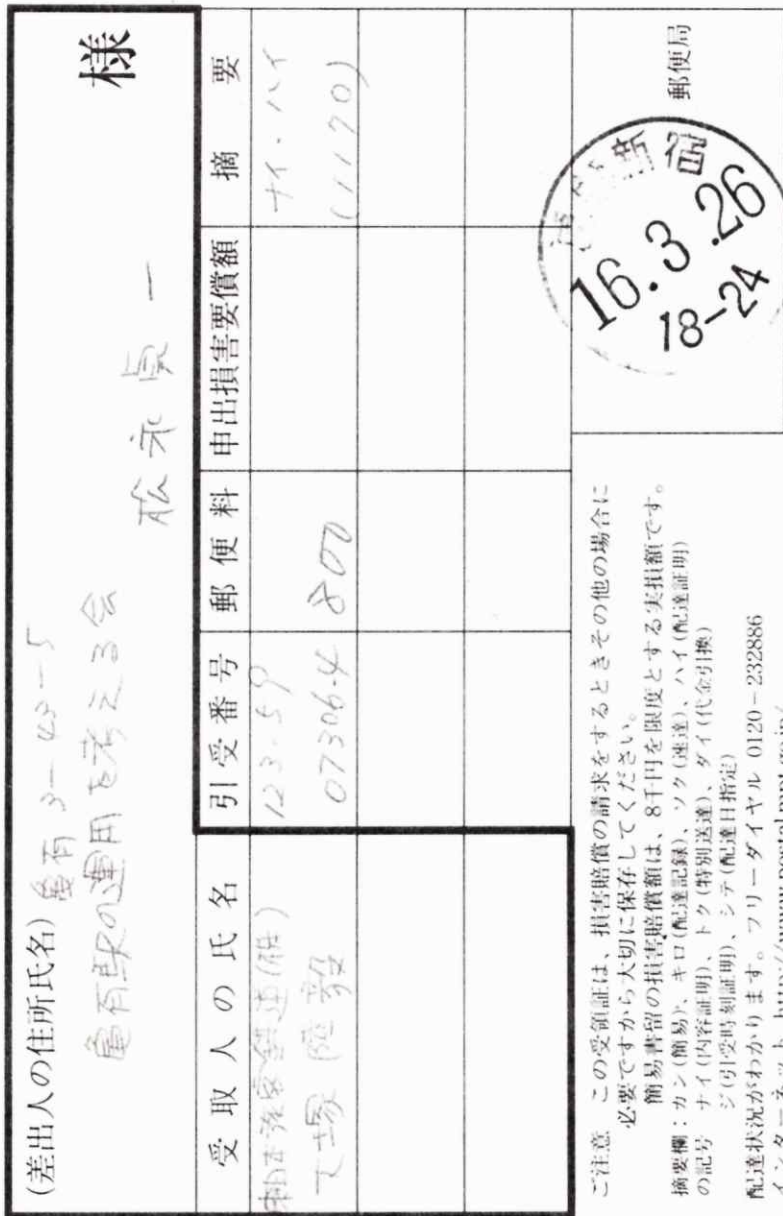 (差出人の住所氏名) 亀有3-43-5
亀有駅の運用を考える会
松永貞一
様
受取人の氏名 引受番号 郵便料 申出損害要償額 摘要
東日本旅客鉄道(株) 123-59 ナイ・ハイ
大塚陸毅 07306-4 800 (1170)
ご注意 この受領証は、損害賠償の請求をするときその他の場合に
必要ですから大切に保存してください。
簡易書留の損害賠償額は、8千円を限度とする実損額です。
摘要欄:カン(簡易)、キロ(配達記録)、ソク(速達)、ハイ(配達証明)
の記号 ナイ(内容証明)、トク(特別送達)、ダイ(代金引換)
ジ(引受時刻証明)、シテ(配達日指定)
配達状況がわかります。フリーダイヤル 0120-232886
インターネット http://www.postal.mpt.go.jp/
郵便局
新宿
16.3.26
18-24